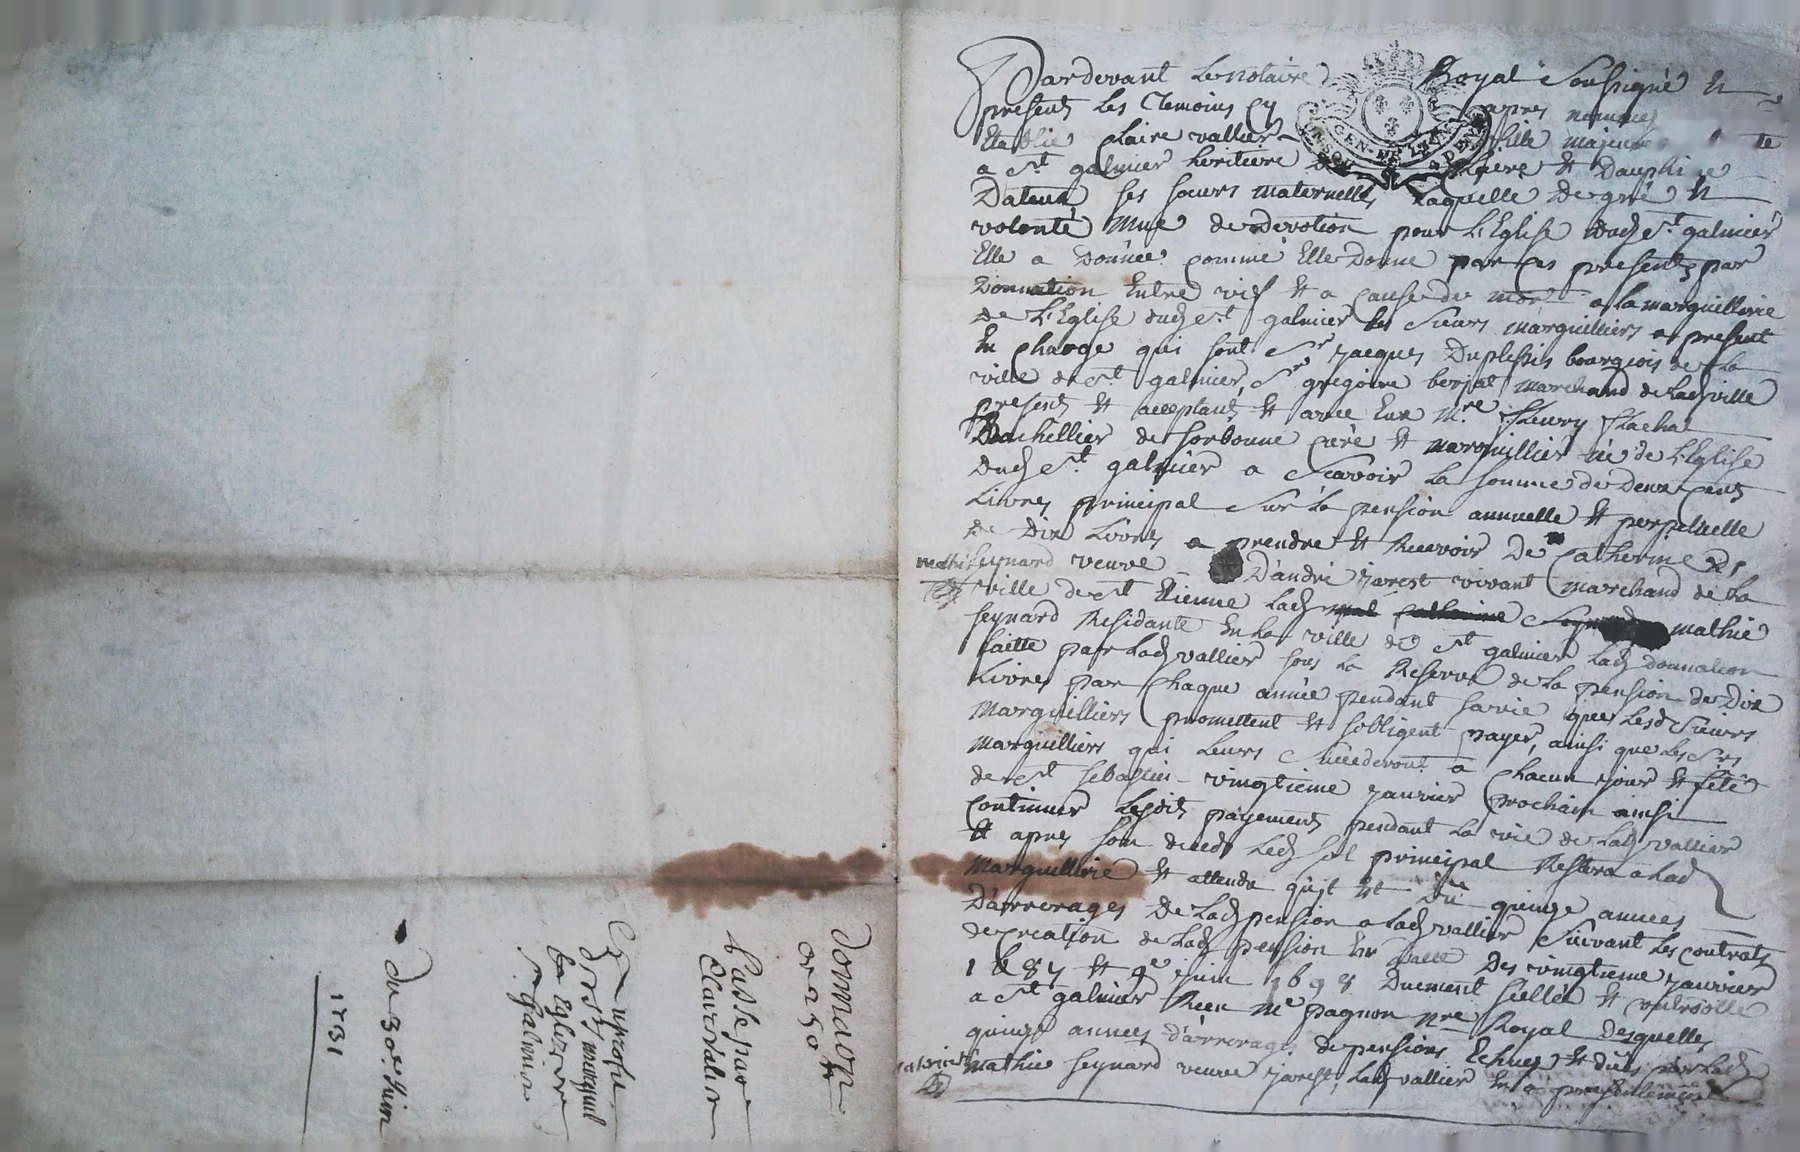 Pardevant Le notaire Royal Soussigné Et
presents les Temoins Cy apres nommes
Etablie Claire vallier fille majeure
a St galmier heritiere Et Dauphine
ses sœurs maternelles Laquelle De gré Et
volonté Mue de devotion pour L'Eglise dud St galmier
Elle a Donnée Comme Elle Donne par Ces presentes par
Donnation Entre vifs Et a Cause de mort a la marguillerie
de L'Eglise dud St galmier les Sieurs marguilliers a present
En Charge qui sont Sr jacques Duplessis bourgeois de La
ville de St galmier, Sr gregoire berjat Marchand de Lad ville
presents Et acceptants Et avec Eux Mre fleury flachat
Bachellier de sorbonne Curé Et marguillier né de L'Eglise
Dud St galmier a Scavoir La somme de Deux Cents
Livres principal Sur La pension annuelle Et perpetuelle
de Dix Livres a prendre Et Recevoir De Catherine
mathie seynard veuve D'andré jarest vivant Marchand de La
ville de St Etienne Lad mathie
seynard Residante En La ville de St galmier Lad donnation
faitte par Lad vallier sous La Reserve de La pension de Dix
Livres par Chaque année pendant sa vie que Lesd Sieurs
Marguilliers promettent Et s'obligent payer, ainsi que Les Srs
Marguilliers qui Leurs Succederont a Chacun jour Et fête
de St sebastien vingtieme janvier prochain ainsi
Continuer Lesdits payements pendant La vie de Lad vallier
Et apres son deceds Led sol principal Restera a Lad
Marguillerie Et attendu qu'jl Est Dû quinze années
D'arrerages De Lad pension a Lad vallier Suivant Les Contrats
de Creation de Lad pension En datte Des vingtieme janvier
1687 Et 4e juin 1698 Duement scellés Et Controllé
a St galmier Reçu Me pagnon nre Royal Desquelles
quinze années D'arrerages de pensions Echues Et dües par Lad
mathie seynard veuve jarest Lad vallier En a presentement
donnaon
de 250 #
passé par
Claire Valier
au profit
des srs marguil
de L'Eglize de
St Galmier
du 30e Juin
1731